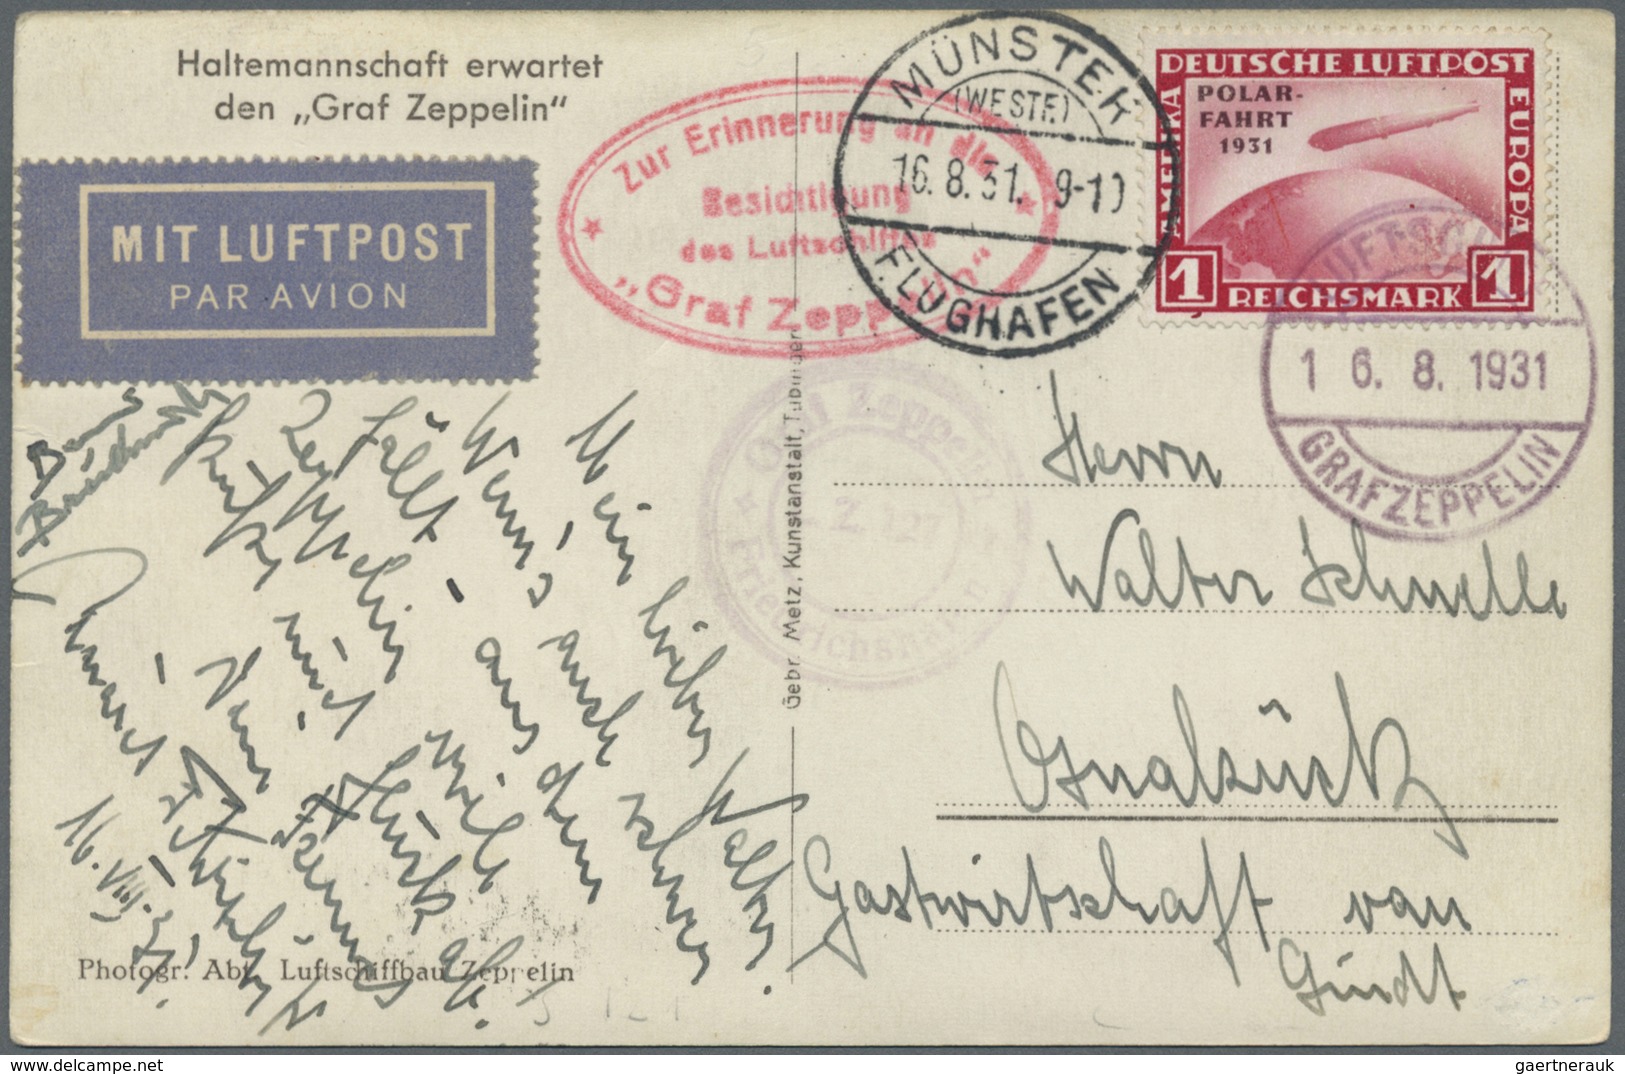 Haltemannschaft erwartet
den „Graf Zeppelin“
MIT LUFTPOST
PAR AVION
Zur Erinnerung an die
Besichtigung
des Luftschiffes
„Graf Zeppelin“
MÜNSTER
(WESTF.)
16.8.31. 9-10
FLUGHAFEN
DEUTSCHE LUFTPOST
POLAR-
FAHRT
1931
AMERIKA
EUROPA
1 REICHSMARK 1
LUFTSCHIFF
16.8.1931
GRAF ZEPPELIN
Graf Zeppelin
L.Z. 127
Friedrichshafen
Gebr. Metz, Kunstanstalt, Tübingen
Mein lieber Walter.
Wenns auch schwer
fällt aus dem
Zeppelin
mit
16. VIII. 31.
Herrn
Walter Schnelle
Osnabrück
Gastwirtschaft van
Gündt
Photogr. Abt. Luftschiffbau Zeppelin
gaertnerauk